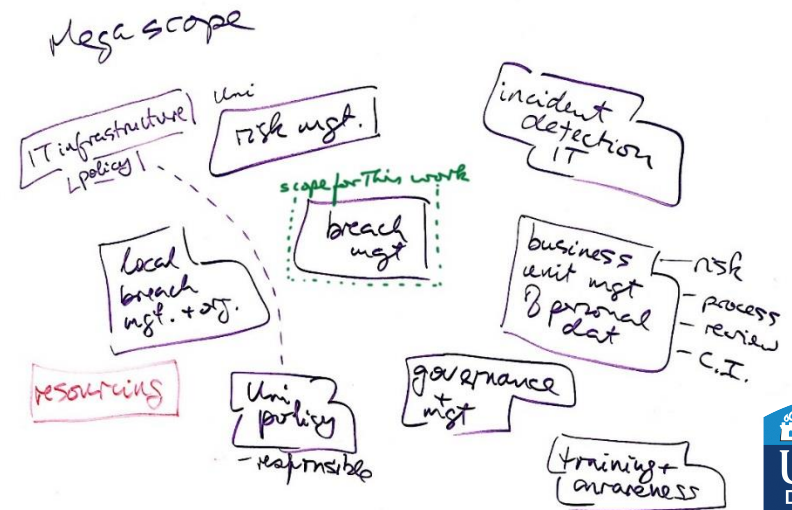 Mega scope
IT infrastructure
policy
Uni
risk mgt.
incident
detection
IT
scope for This work
breach
mgt
local
breach
mgt. + org.
business
unit mgt
personal
dat
risk
- process
- review
- C.I.
resourcing
Uni
policy
- responsible
governance
+ mgt
training +
awareness
U
D